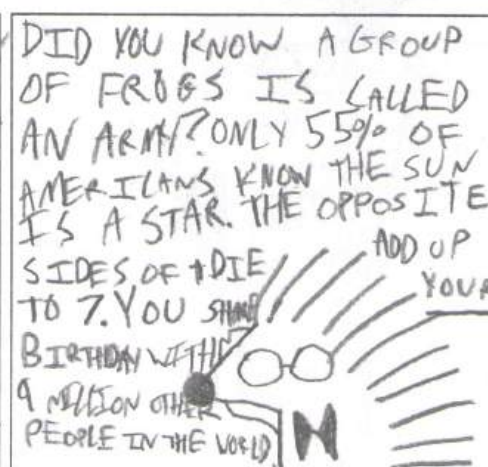 DID YOU KNOW A GROUP
OF FROGS IS CALLED
AN ARMY? ONLY 55% OF
AMERICANS KNOW THE SUN
IS A STAR. THE OPPOSITE
SIDES OF A DIE ADD UP
TO 7. YOU SHARE YOUR
BIRTHDAY WITH
9 MILLION OTHER
PEOPLE IN THE WORLD